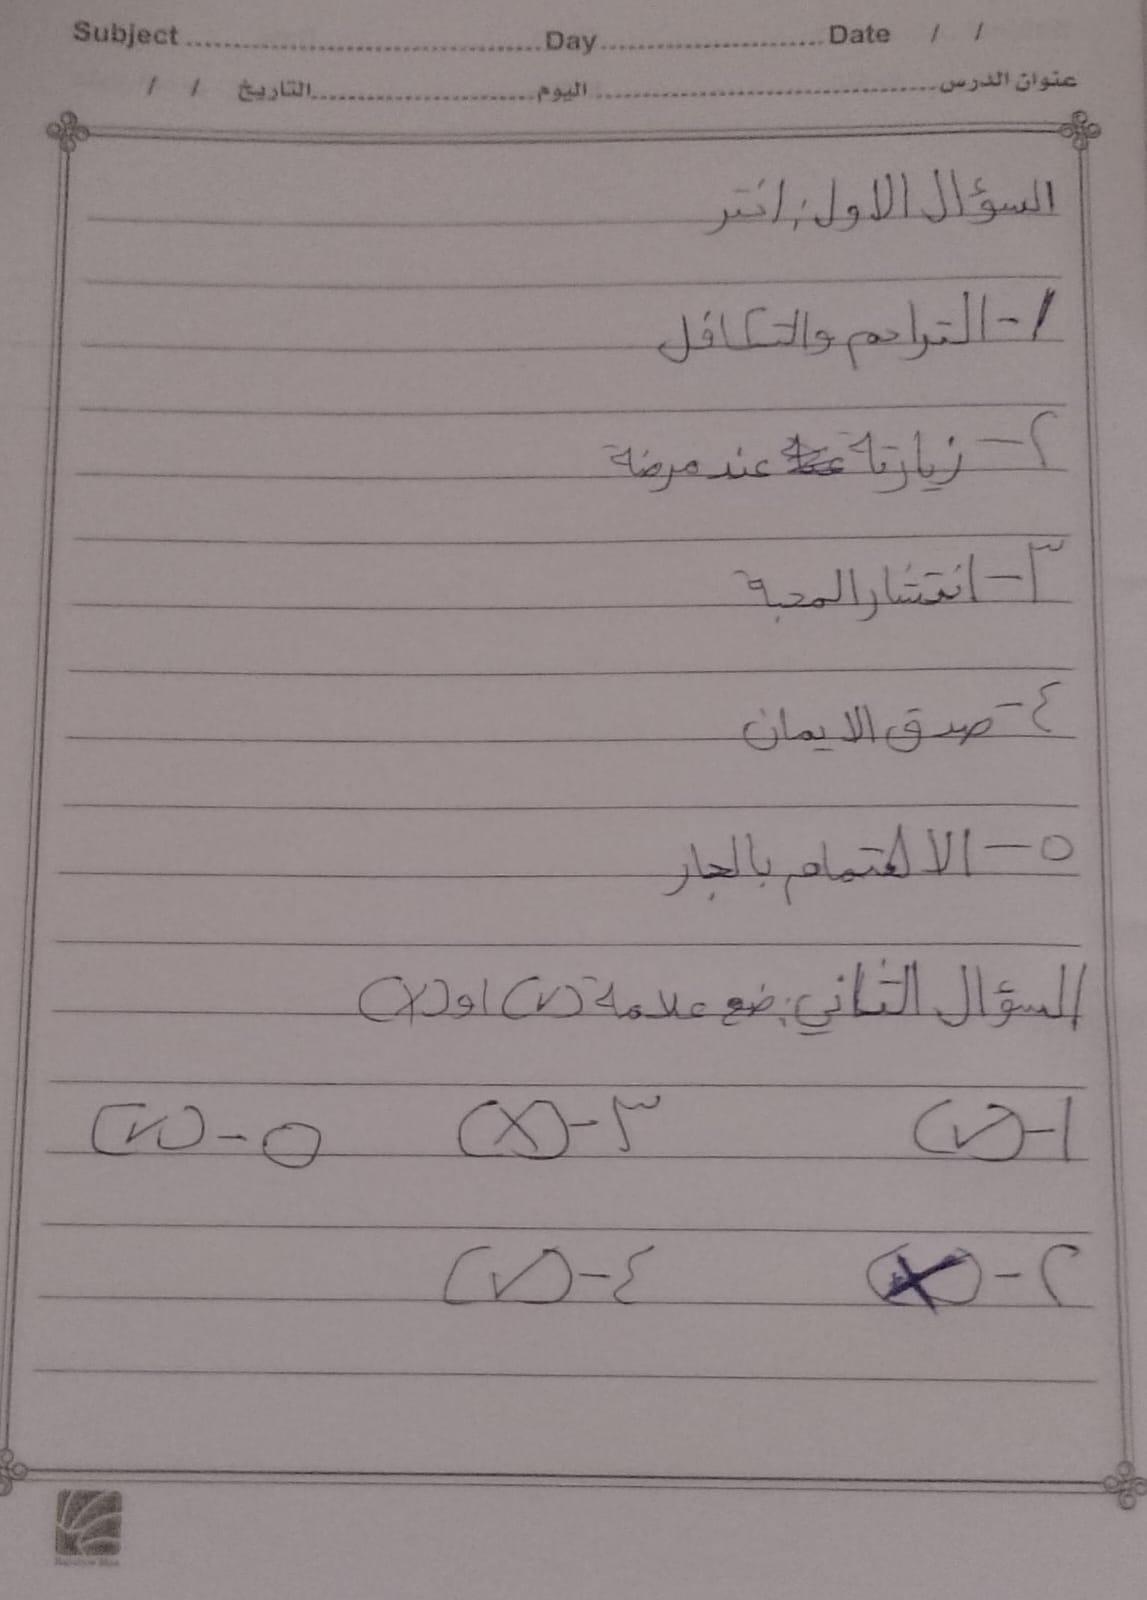 Subject ........ Day ........ Date / /
عنوان الدرس ........ اليوم ........ التاريخ / /
السؤال الاول: اختر
١- التراحم والتكافل
٢- زيارتة عند مرضة
٣- انتشار المحبة
٤- صدق الايمان
٥- الاهتمام بالجار
السؤال الثاني: ضع علامة (✓) او (X)
١- (✓) ٣- (X) ٥- (✓)
٢- (X) ٤- (✓)